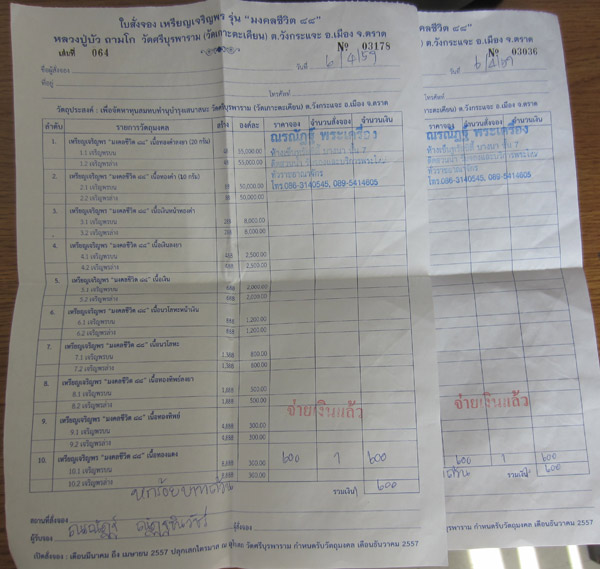 ใบสั่งจอง เหรียญเจริญพร รุ่น "มงคลชีวิต ๘๘"
หลวงปู่บัว ถามโก วัดศรีบุรพาราม (วัดเกาะตะเคียน) ต.วังกระแจะ อ.เมือง จ.ตราด
เล่มที่ 064 № 03178
ชื่อผู้สั่งจอง วันที่ 6/4/59
ที่อยู่ โทรศัพท์
วัตถุประสงค์ : เพื่อจัดหาทุนสมทบทำนุบำรุงเสนาสนะ วัดศรีบุรพาราม (วัดเกาะตะเคียน) ต.วังกระแจะ อ.เมือง จ.ตราด
ลำดับ รายการวัตถุมงคล สร้าง องค์ละ ราคาจอง จำนวนสั่งจอง จำนวนเงิน
ณรณัฏฐ์ พระเครื่อง
โทร.086-3140545, 089-5414605
1. เหรียญเจริญพร "มงคลชีวิต ๘๘" เนื้อทองคำลงยา (20 กรัม)
1.1 เจริญพรบน 55,000.00
1.2 เจริญพรล่าง 55,000.00
2. เหรียญเจริญพร "มงคลชีวิต ๘๘" เนื้อทองคำ
2.1 เจริญพรบน 50,000.00
2.2 เจริญพรล่าง 50,000.00
3. เหรียญเจริญพร "มงคลชีวิต ๘๘" เนื้อเงินหน้าทองคำ
3.1 เจริญพรบน 288 8,000.00
3.2 เจริญพรล่าง 288 8,000.00
4. เหรียญเจริญพร "มงคลชีวิต ๘๘" เนื้อเงินลงยา
4.1 เจริญพรบน 2,500.00
4.2 เจริญพรล่าง 2,500.00
5. เหรียญเจริญพร "มงคลชีวิต ๘๘" เนื้อเงิน
5.1 เจริญพรบน 2,000.00
5.2 เจริญพรล่าง 2,000.00
6. เหรียญเจริญพร "มงคลชีวิต ๘๘" เนื้อนวโลหะหน้าเงิน
6.1 เจริญพรบน 1,200.00
6.2 เจริญพรล่าง 1,200.00
7. เหรียญเจริญพร "มงคลชีวิต ๘๘" เนื้อนวโลหะ
7.1 เจริญพรบน 1,388 800.00
7.2 เจริญพรล่าง 1,388 800.00
8. เหรียญเจริญพร "มงคลชีวิต ๘๘" เนื้อทองทิพย์ลงยา
8.1 เจริญพรบน 1,888 500.00
8.2 เจริญพรล่าง 1,888 500.00
จ่ายเงินแล้ว
9. เหรียญเจริญพร "มงคลชีวิต ๘๘" เนื้อทองทิพย์
9.1 เจริญพรบน 4,888 300.00
9.2 เจริญพรล่าง 4,888 300.00
10. เหรียญเจริญพร "มงคลชีวิต ๘๘" เนื้อทองแดง
10.1 เจริญพรบน 8,888 300.00 600 1 600
10.2 เจริญพรล่าง 8,888 300.00
หกร้อยบาทถ้วน รวมเงิน 600
สถานที่สั่งจอง
ผู้รับจอง ผู้สั่งจอง
เปิดสั่งจอง : เดือนมีนาคม ถึง เมษายน 2557 ปลุกเสกไตรมาส ณ อุโบสถ วัดศรีบุรพาราม กำหนดรับวัตถุมงคล เดือนธันวาคม 2557
"มงคลชีวิต ๘๘"
ต.วังกระแจะ อ.เมือง จ.ตราด
№ 03036
วันที่ 6/4/59
โทรศัพท์
(วัดเกาะตะเคียน) ต.วังกระแจะ อ.เมือง จ.ตราด
ราคาจอง จำนวนสั่งจอง จำนวนเงิน
ณรณัฏฐ์ พระเครื่อง
โทร.086-3140545, 089-5414605
จ่ายเงินแล้ว
600 1 600
รวมเงิน 600
กำหนดรับวัตถุมงคล เดือนธันวาคม 2557